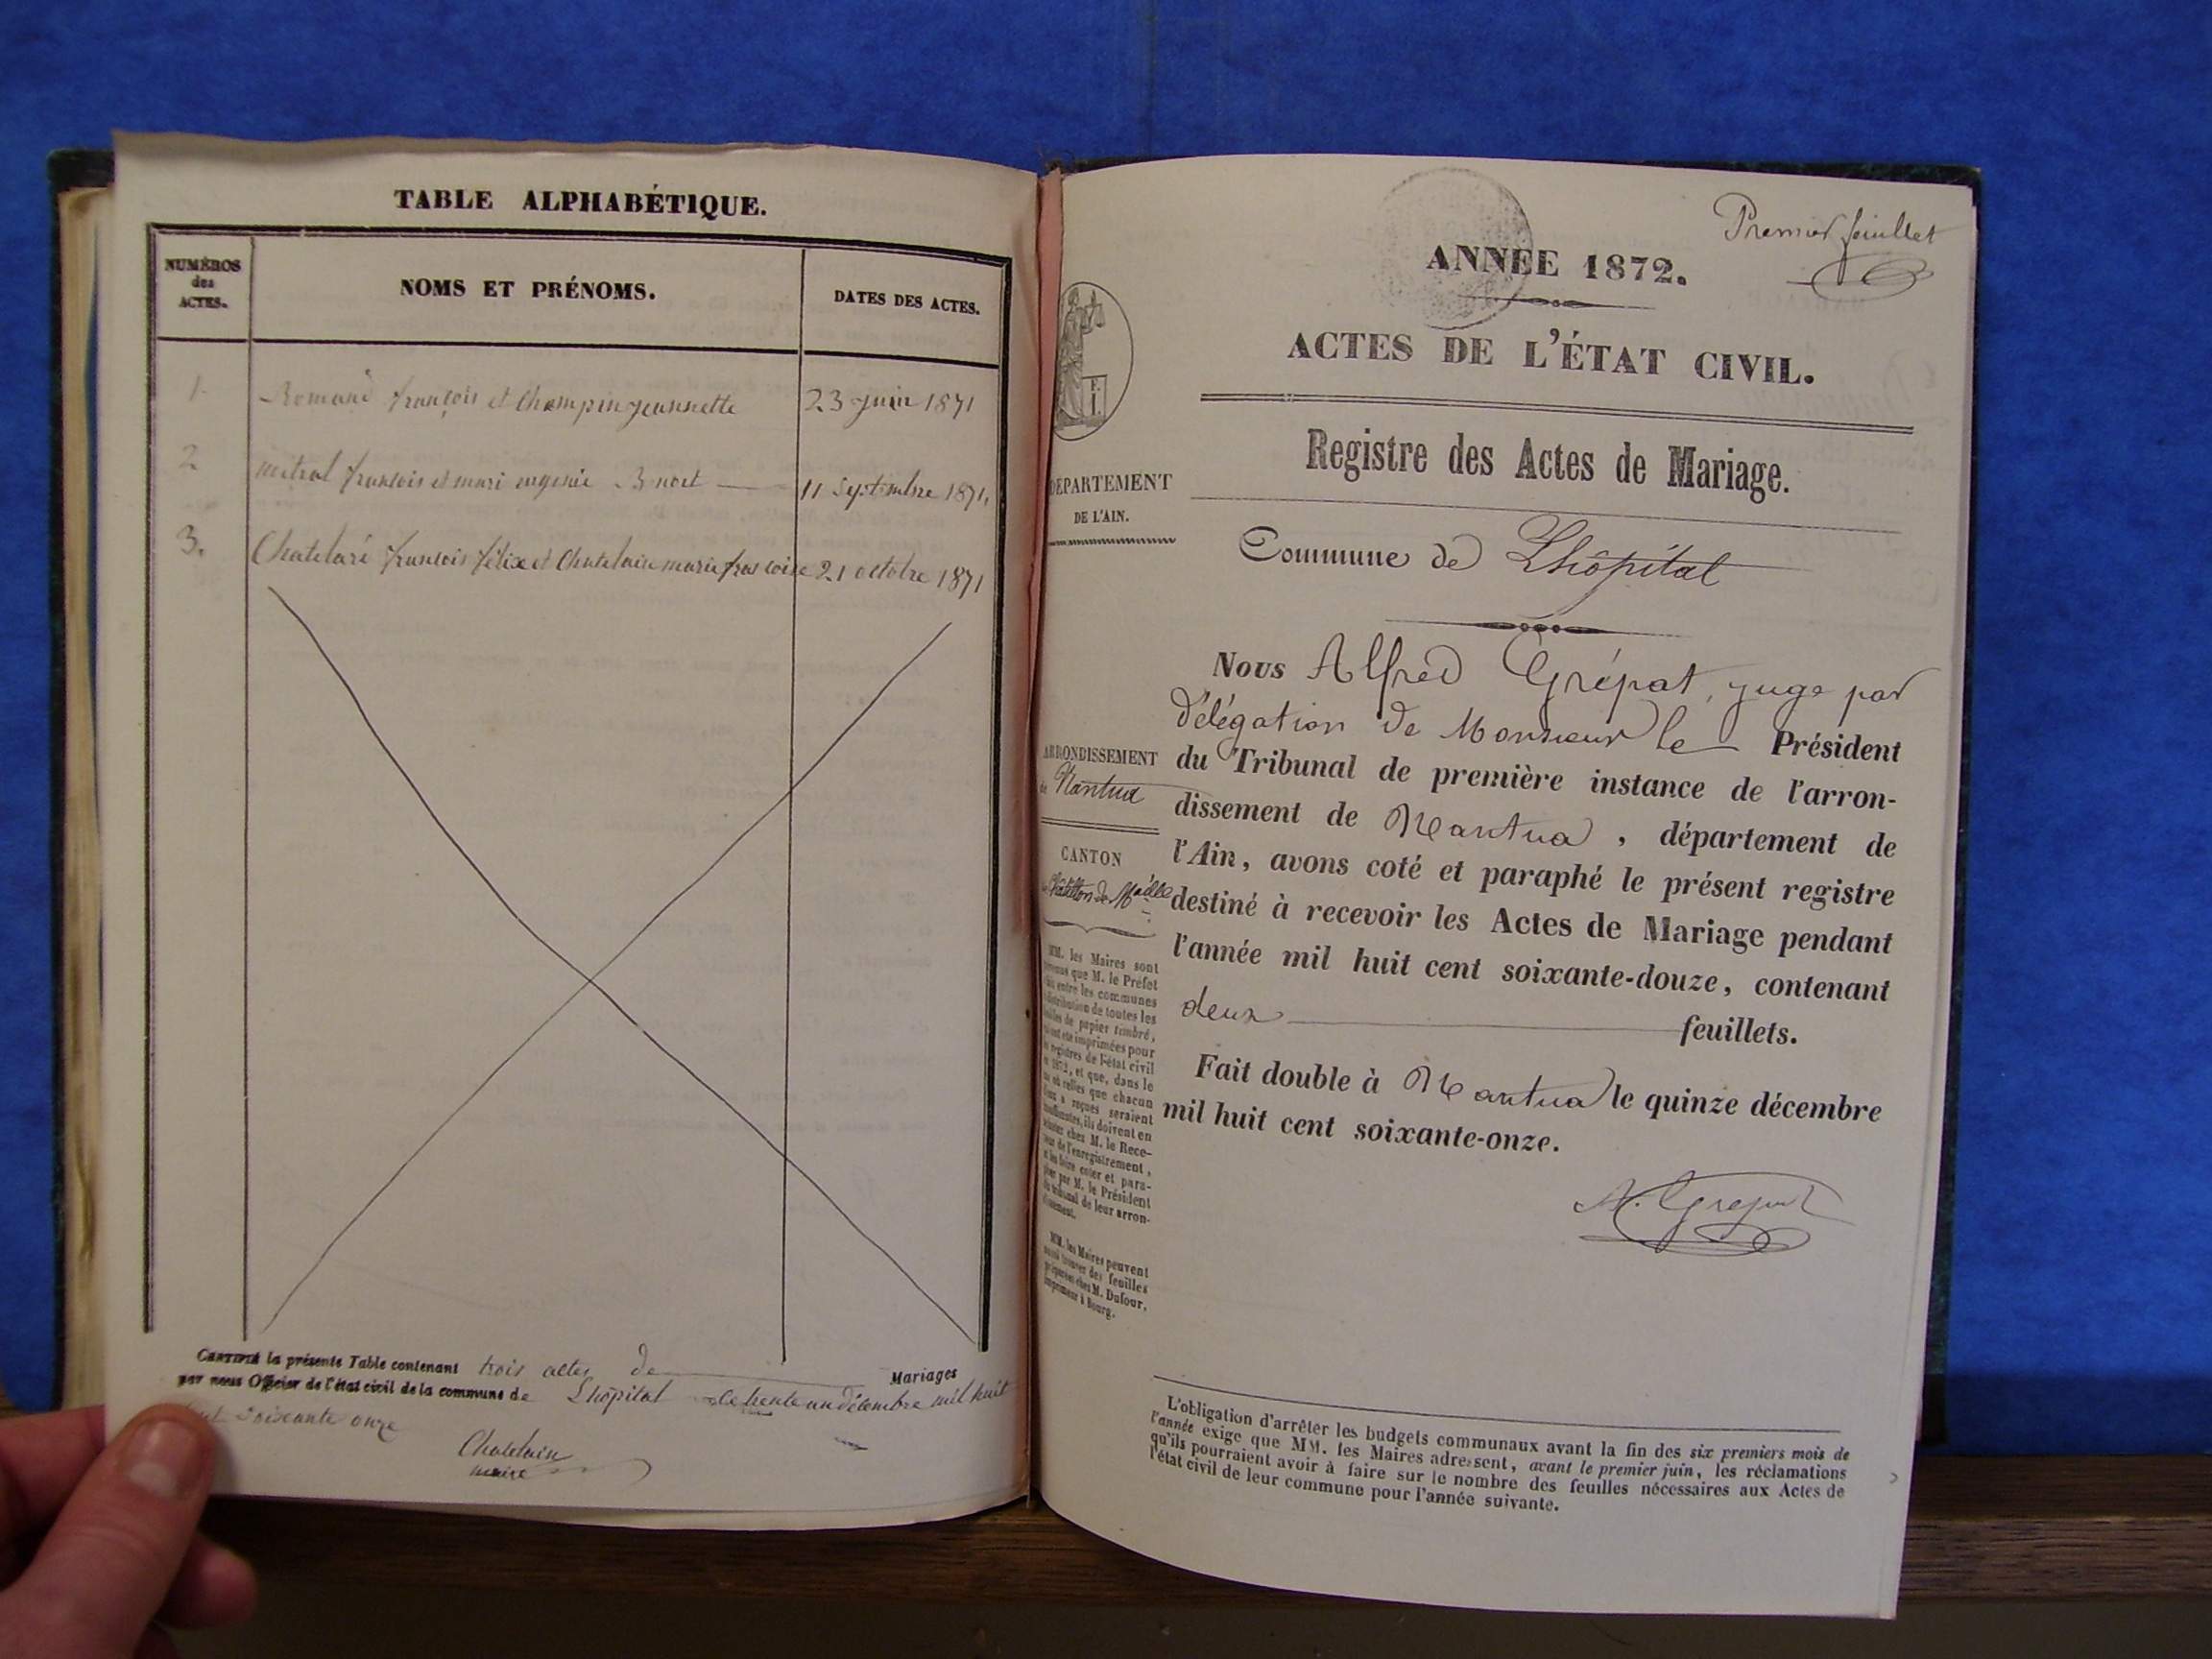 TABLE ALPHABÉTIQUE.
NUMÉROS
des
ACTES.
NOMS ET PRÉNOMS.
DATES DES ACTES.
1. Romand françois et Champin jeannette 23 juin 1871
2 mitral francois et mari eugenie 11 septembre 1871.
3. Chatelard francois félix et Chatelain marie francoise 21 octobre 1871
CERTIFIÉ la présente Table contenant trois actes de Mariages
par nous Officier de l'état civil de la commune de Lhôpital le trente un décembre mil huit
cent soixante onze
Chatelain
maire
Premier feuillet
ANNÉE 1872.
ACTES DE L'ÉTAT CIVIL.
Registre des Actes de Mariage.
DÉPARTEMENT
DE L'AIN.
Commune de Lhôpital
ARRONDISSEMENT
de Nantua
CANTON
Châtillon de Michaille
Nous Alfred Grépat, juge par
délégation de Monsieur le Président
du Tribunal de première instance de l'arron-
dissement de Nantua, département de
l'Ain, avons coté et paraphé le présent registre
destiné à recevoir les Actes de Mariage pendant
l'année mil huit cent soixante-douze, contenant
deux feuillets.
Fait double à Nantua le quinze décembre
mil huit cent soixante-onze.
A. Grépat
MM. les Maires sont
que M. le Préfet
entre les communes
distribution de toutes les
de papier timbré,
été imprimées pour
registres de l'état civil
1872, et que, dans le
où celles que chacun
reçues seraient
insuffisantes, ils doivent en
chez M. le Rece-
de l'enregistrement,
les faire coter et para-
par M. le Président
du tribunal de leur arron-
dissement.
MM. les Maires peuvent
trouver des feuilles
chez M. Dufour,
imprimeur à Bourg.
L'obligation d'arrêter les budgets communaux avant la fin des six premiers mois de
l'année exige que MM. les Maires adressent, avant le premier juin, les réclamations
qu'ils pourraient avoir à faire sur le nombre des feuilles nécessaires aux Actes de
l'état civil de leur commune pour l'année suivante.